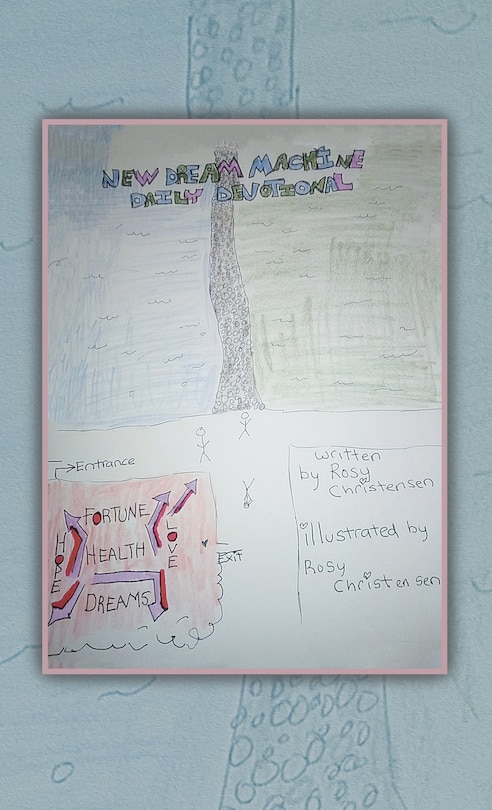 NEW DREAM MACHINE
DAILY DEVOTIONAL
Entrance
FORTUNE
HOPE
HEALTH
LOVE
DREAMS
EXIT
written
by Rosy
Christensen
illustrated by
Rosy
Christensen